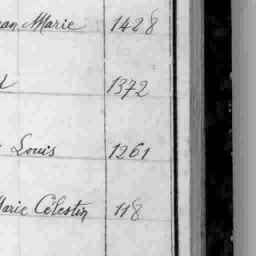 ean Marie 1428
1372
Louis 1261
Marie Célestin 118